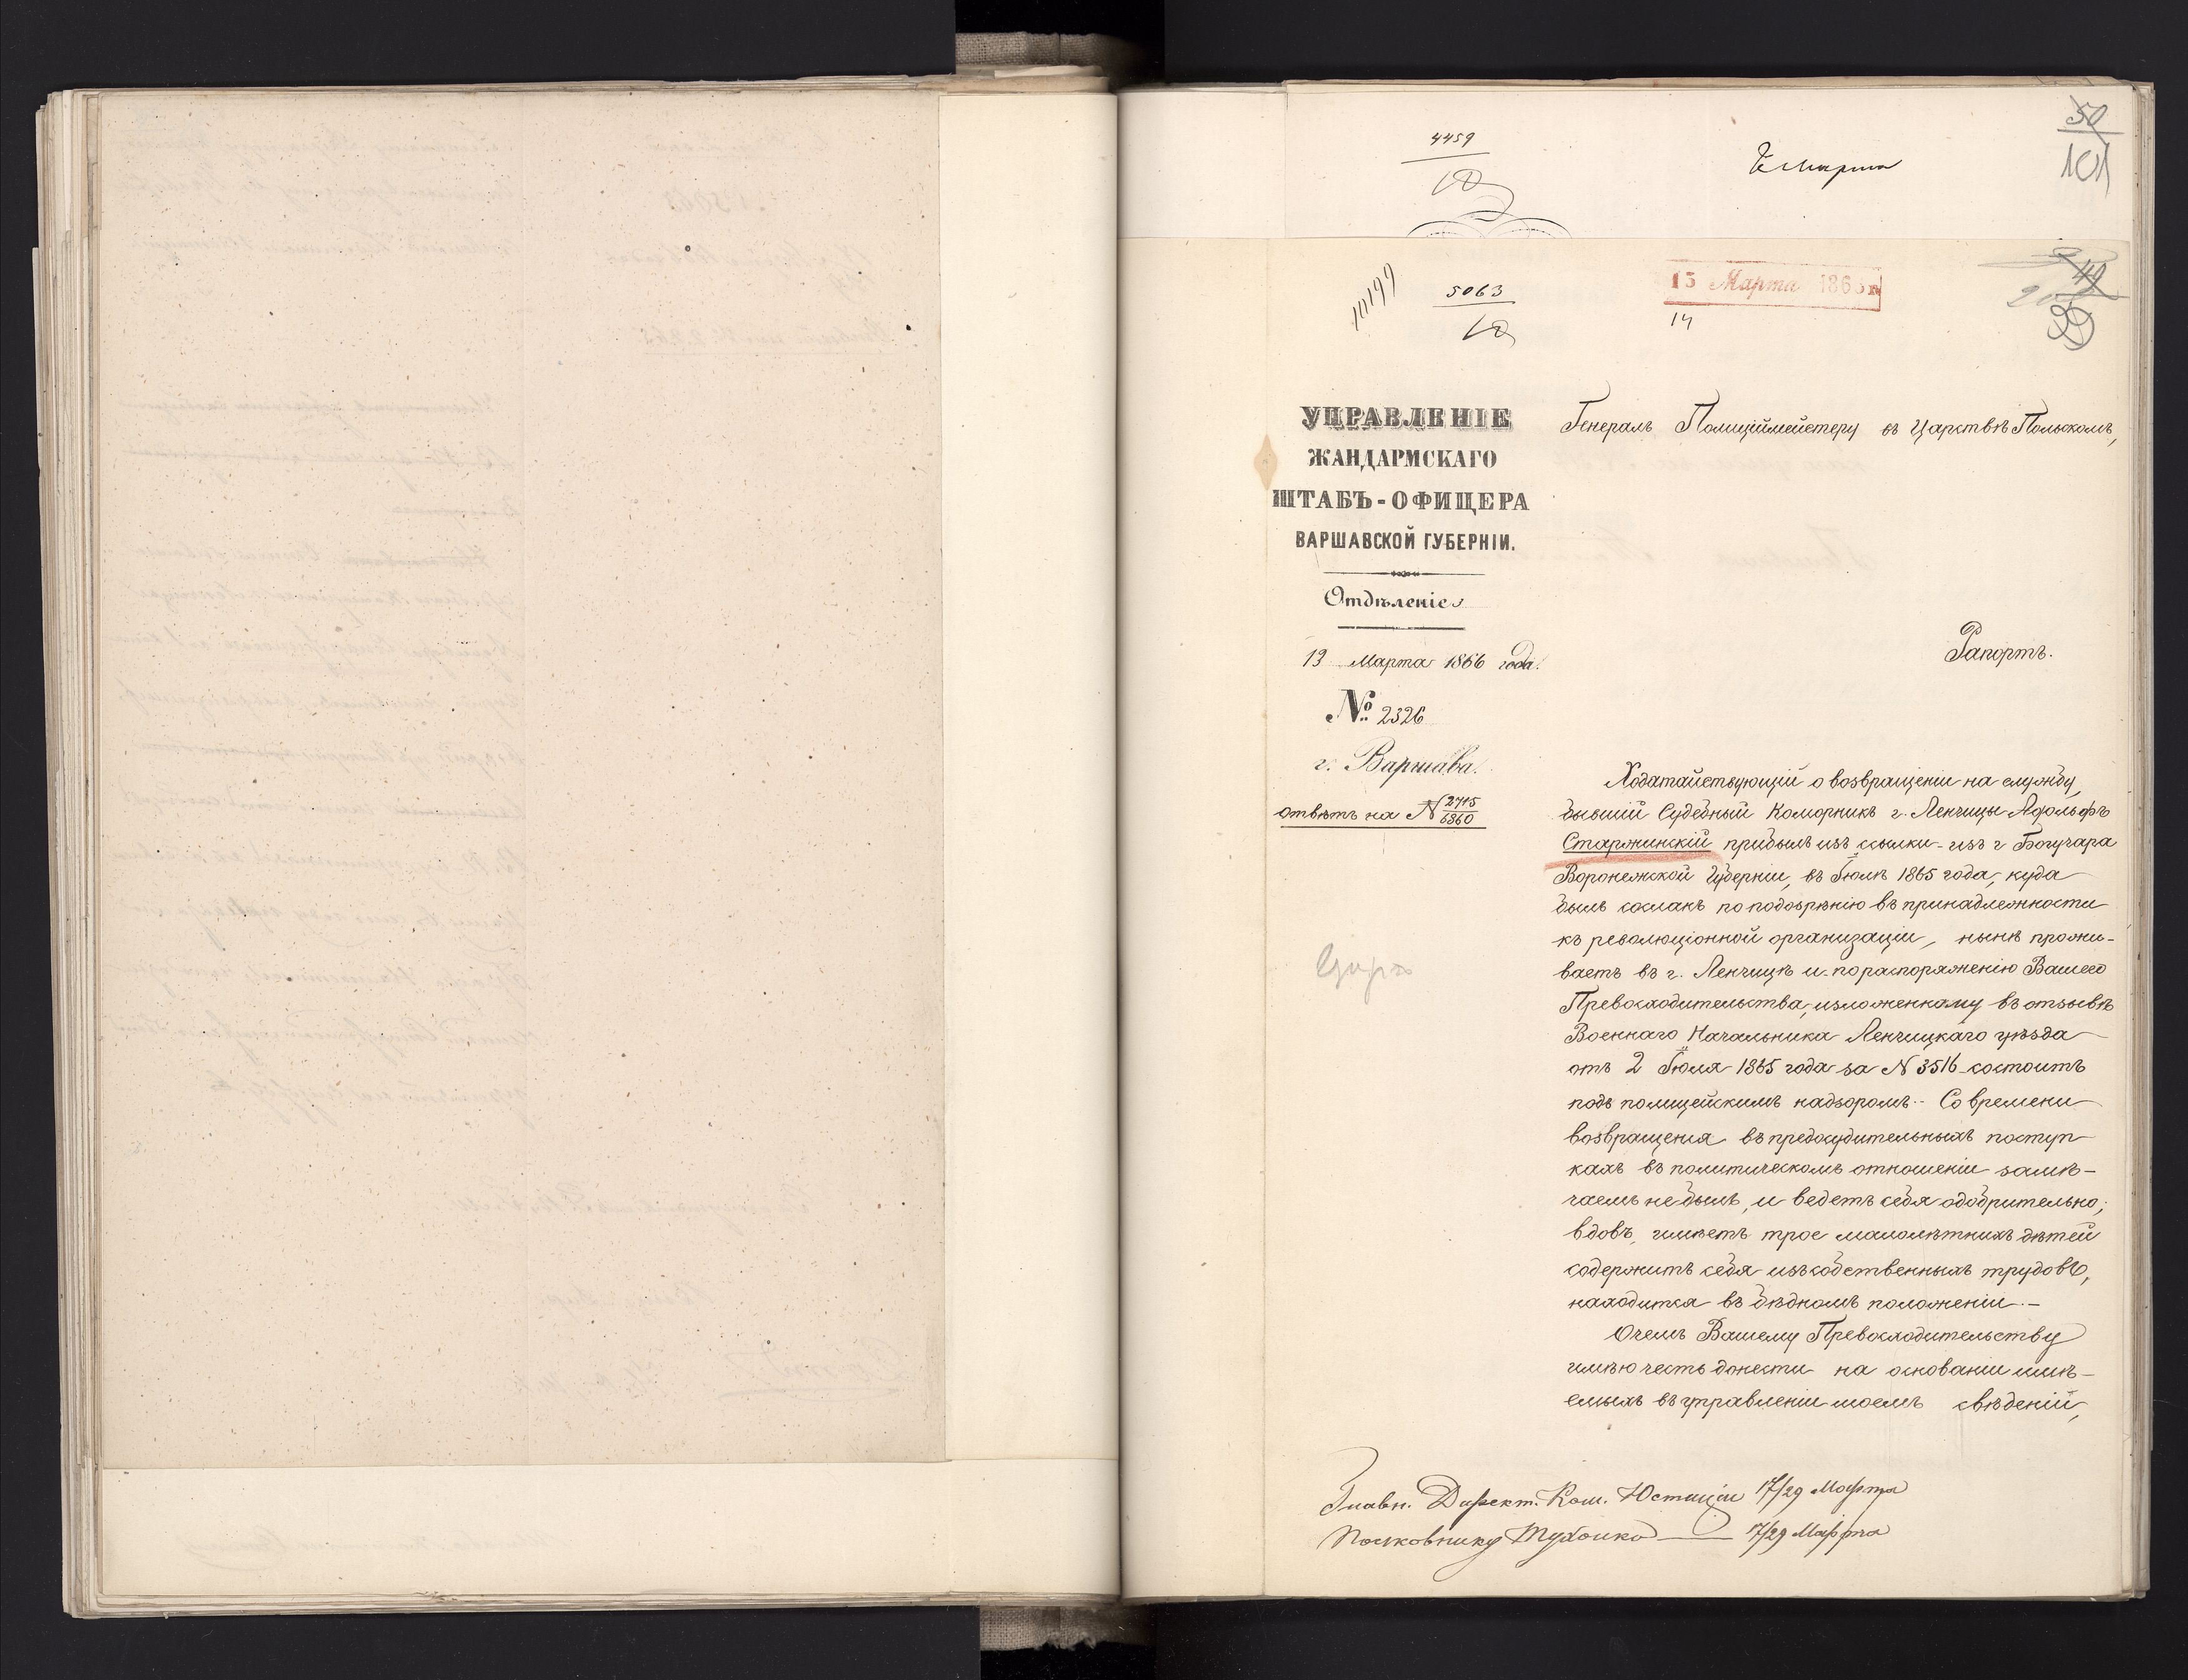 50
101
4459
10
Марта
49
39
15 Марта 1866 г.
14
5063
10
УПРАВЛЕНІЕ
ЖАНДАРМСКАГО
ШТАБЪ-ОФИЦЕРА
ВАРШАВСКОЙ ГУБЕРНІИ.
Отдѣленіе
13 Марта 1866 года.
№ 2326
г. Варшава.
отвѣтъ на N 2715/6360
Генералъ Полиціймейстеру въ Царствѣ Польскомъ,
Рапортъ.
Ходатайствующій о возвращеніи на службу,
бывшій Судебный Коморникъ г. Ленчицы Адольфъ
Старжинскій прибылъ изъ ссылки - изъ г Богучара
Воронежской Губерніи, въ Іюлѣ 1865 года, куда
былъ сосланъ по подозрѣнію въ принадлежности
къ революціонной организаціи, нынѣ прожи-
ваетъ въ г. Ленчицѣ и по распоряженію Вашего
Превосходительства, изложенному въ отзывѣ
Военнаго Начальника Ленчицкаго уѣзда
отъ 2 Іюля 1865 года за N 3516 состоитъ
подъ полицейскимъ надзоромъ.- Со времени
возвращенія въ предосудительныхъ поступ-
кахъ въ политическомъ отношеніи замѣ-
чаемъ не былъ, и ведетъ себя одобрительно;
вдовъ, имѣетъ трое малолѣтнихъ дѣтей
содержитъ себя изъ собственныхъ трудовъ,
находится въ бѣдномъ положеніи.-
О чемъ Вашему Превосходительству
имѣю честь донести на основаніи имѣ-
емыхъ въ управленіи моемъ свѣденій,
Главн. Директ. Ком. Юстиціи 17/29 Марта
Полковнику Тухолко — 17/29 Марта